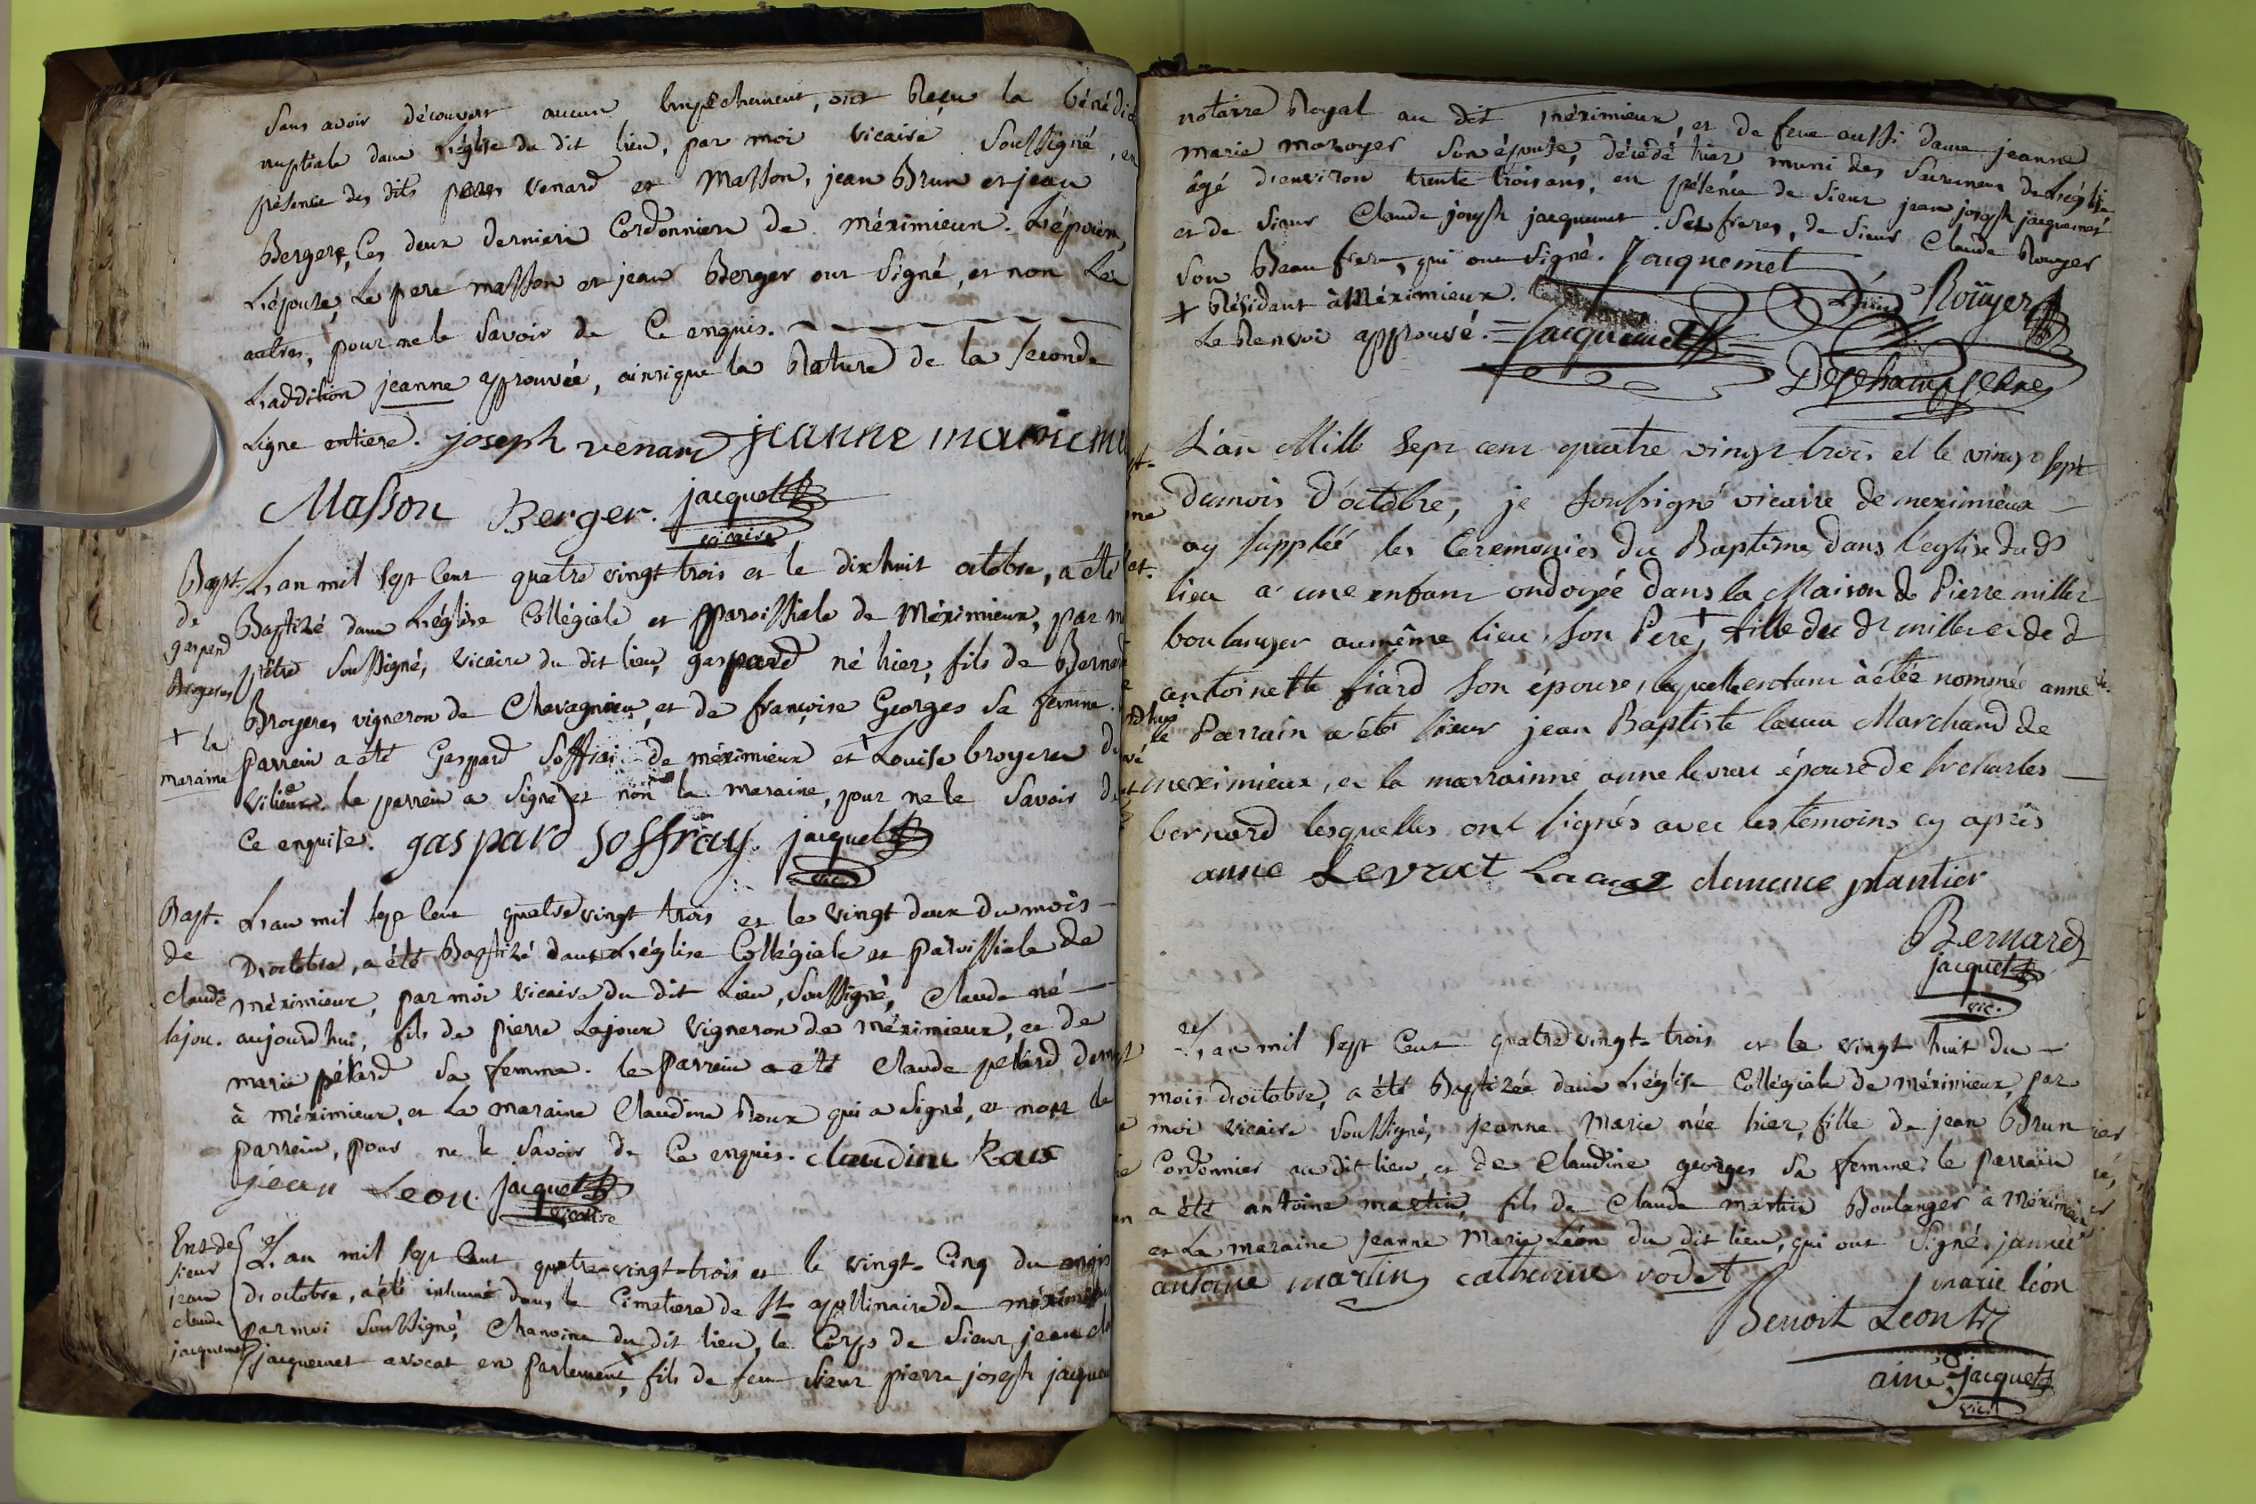 Sans avoir découvert aucun Empechement, ont Reçu la bénédic
nuptiale dans L'église du dit lieu, par moi vicaire Soussigné, en
présence des dits peres venard et Masson, jean Brun et jean
Berger, Ces deux derniers Cordonniers de méximieux. L'époux,
L'épouse, Le pere masson et jean Berger ont signé, et non Les
autres, pour ne le Savoir de Ce enquis.
L'addition jeanne approuvée, ainsi que la Rature de la seconde
Ligne entiere. joseph venard jeanne marie m
Masson Berger. jacquet
vicaire
Bapt. L'an mil sept Cent quatre vingt trois et le dixhuit octobre, a été
de Baptizé dans L'église Collégiale et paroissiale de Méximieux, par m
gaspard prêtre Soussigné, vicaire du dit lieu, gaspard né hier, fils de Bernard
Broyeres Broyeres vigneron de Chavagnieu, et de françoise Georges sa femme.
+ la parrein a été Gaspard Soffrai de méximieux et + Louise broyeres de
maraine vilieux. le parrein a signé et non la maraine, pour ne le Savoir de
Ce enquise. gaspard Soffray. jacquet
vic.
Bapt. L'an mil sept Cent quatre vingt trois et le vingt deux du mois
de D'octobre, a été Baptizé dans L'église Collégiale et paroissiale de
claude méximieux, par moi vicaire du dit Lieu, Soussigné, Claude né
lajou. aujourdhui, fils de pierre Lajoux vigneron de méximieux, et de
marie pétard sa femme. le parrein a été Claude petard, demt
à méximieux, et La maraine Claudine Roux qui a signé, et non le
parrein, pour ne le Savoir de Ce enquis. claudine Roux
jean Leon. jacquet
vicaire
Ent. de L'an mil sept Cent quatre-vingt-trois et le vingt-Cinq du mois
sieur D'octobre, a été inhumé dans le Cimetiere de St apollinaire de méximieux
jean par moi Soussigné, Chanoine du dit lieu, le Corps de Sieur jean cl
claude jacquemet avocat en parlement, + fils de feu sieur pierre joseph jacquem
jacquemet
notaire Royal au dit méximieux, et de feue aussi dame jeanne
marie mozoyer son épouse, décédé hier muni des Sacremens de L'église,
âgé d'environ trente trois ans, en présence de Sieur jean joseph jacquemet
et de Sieur Claude joseph jacquemet ses freres, de Sieur Claude Rouyer
son Beau frere, qui ont signé. Jacquemet
+ Résidant à Méximieux. Roüyer
Le Renvoi approuvé. Jacquemet
L'an Mille Sept cent quatre vingt trois et le vingt sept
dumois D'octobre, je soussigné vicaire de meximieux
ay supplée les Ceremonies du Baptême dans l'eglise dud
lieu a une enfant ondoyée dans la Maison de Pierre millet
boulanger aumême lieu, son Pere, + fille du dt millet et de d
antoinette fiard son épouse, laquelle enfant à étée nommée anne
le Parrain a été sieur jean Baptiste Marchand de
meximieux, et la marrainne anne levrat épouse de Sr charles
bernard lesquelles ont signés avec les temoins cy après
anne Levrat clemence plantier
Bernard
jacquet
vic.
L'an mil sept Cent quatre vingt-trois et le vingt huit du
mois d'octobre, a été Baptizée dans L'église Collégiale de méximieux, par
moi vicaire Soussigné, jeanne Marie née hier, fille de jean Brun
Cordonnier au dit lieu, et de Claudine georges sa femme. le parrain
a été antoine martin, fils de Claude martin Boulanger à Méximieux
et La maraine jeanne Marie Léon du dit lieu, qui ont signé. jeanne
antoine martin catherine vodet marie léon
Benoit Leon
ainé jacquet
vic.